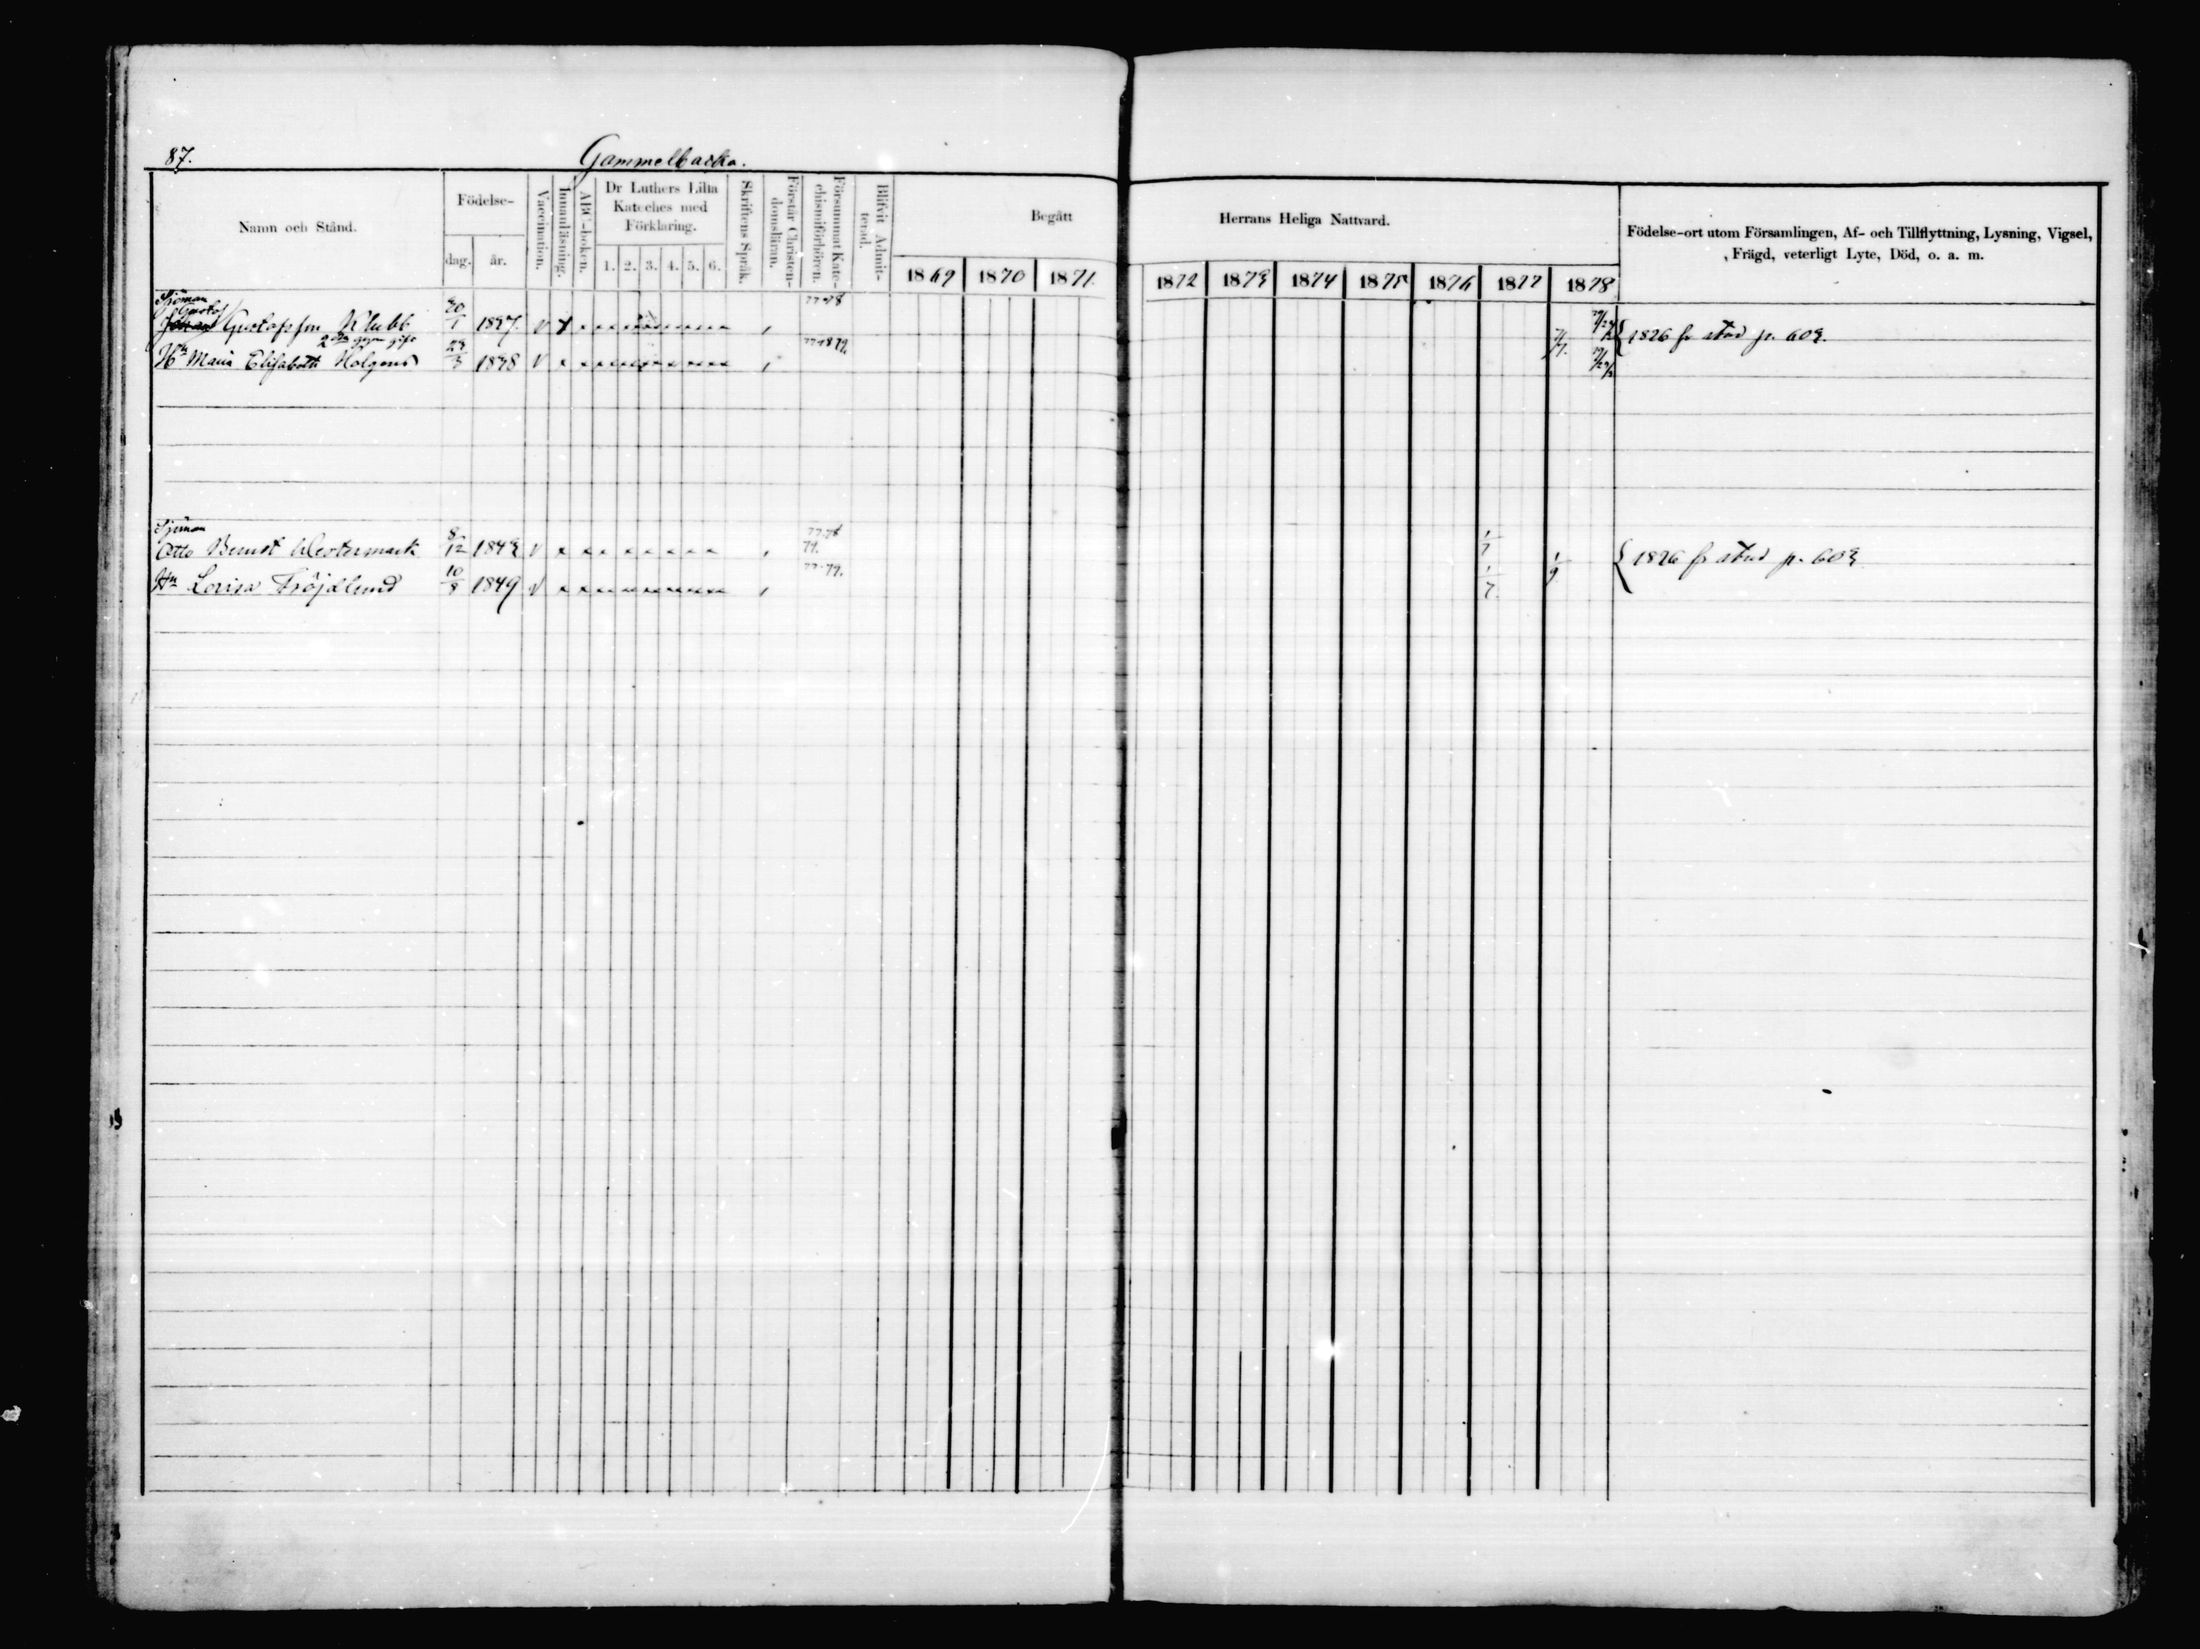 87.
Gammelbacka.
Namn och Stånd.
Födelse-
dag.
år.
Vaccination.
Innanläsning.
ABC-boken.
Dr Luthers Lilla
Kateches med
Förklaring.
1. 2. 3. 4. 5. 6.
Skriftens Språk.
Förstår Christen-
domsläran.
Försummat Kate-
chismiförhören.
Blifvit Admit-
terad.
Begått
Herrans Heliga Nattvard.
1869 1870 1871.
1872 1873 1874 1875 1876 1877 1878
Födelse-ort utom Församlingen, Af- och Tillflyttning, Lysning, Vigsel,
, Frägd, veterligt Lyte, Död, o. a. m.
Sjöman
Gustaf
Gustafsson Klubb 1827. v 77-78 1876 fr stad p. 603.
2dra gången gift
Hn Maria Elisabeth Holgers 23/3 1838 v 77-78 79.
Sjöman
Otto Bernst Westermark 8/12 1843 v 77-78 79. 1/7 1876 fr stad p. 603
Hn Lovisa Fröjdlund 10/8 1849 v 77-79. 1/7 1/9